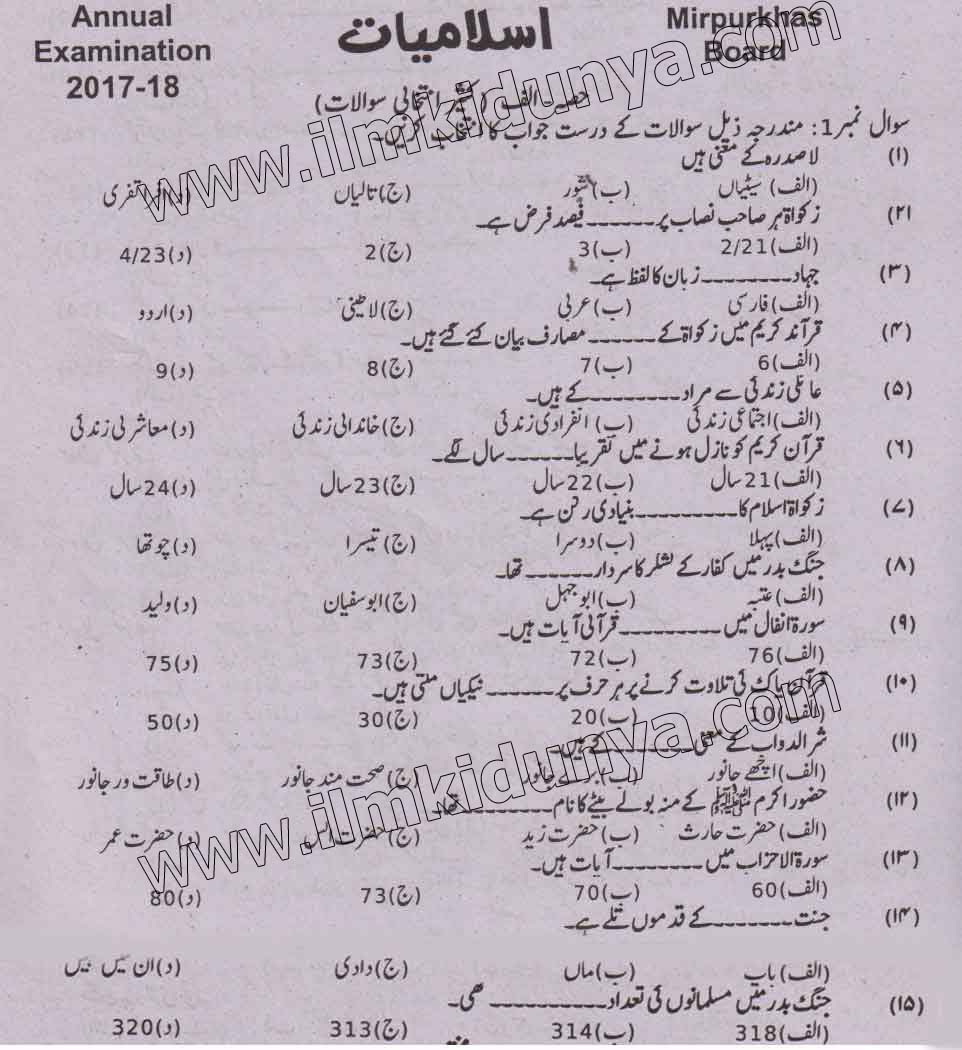 Annual
Examination
2017-18
اسلامیات
Mirpurkhas
Board
حصہ-الف (کثیر انتخابی سوالات)
سوال نمبر1: مندرجہ ذیل سوالات کے درست جواب کا انتخاب کریں۔
(۱) لاصدرہ کے معنی ہیں
(الف) سیٹیاں (ب) شور (ج) تالیاں (د) افراتفری
(۲۱ زکواۃ ہر صاحب نصاب پر ـــــــ فیصد فرض ہے۔
(الف) 2/21 (ب) 3 (ج) 2 (د) 4/23
(۳) جہاد ـــــــــ زبان کا لفظ ہے۔
(الف) فارسی (ب) عربی (ج) لاطینی (د) اردو
(۴) قرآند کریم میں زکواۃ کے ـــــــ مصارف بیان کئے گئے ہیں۔
(الف) 6 (ب) 7 (ج) 8 (د) 9
(۵) عائلی زندگی سے مراد ـــــــــ کے ہیں۔
(الف) اجتماعی زندگی (ب) انفرادی زندگی (ج) خاندانی زندگی (د) معاشرتی زندگی
(۶) قرآن کریم کو نازل ہونے میں تقریبا ـــــــ سال لگے۔
(الف) 21 سال (ب) 22 سال (ج) 23 سال (د) 24 سال
(۷) زکواۃ اسلام کا ـــــــــــ بنیادی رکن ہے۔
(الف) پہلا (ب) دوسرا (ج) تیسرا (د) چوتھا
(۸) جنگ بدر میں کفار کے لشکر کا سردار ـــــــ تھا۔
(الف) عتبہ (ب) ابوجہل (ج) ابوسفیان (د) ولید
(۹) سورۃ انفال میں ـــــــــــ قرآنی آیات ہیں۔
(الف) 76 (ب) 72 (ج) 73 (د) 75
(۱۰) قرآن پاک کی تلاوت کرنے پر ہر حرف پر ـــــــ نیکیاں ملتی ہیں۔
(الف) 10 (ب) 20 (ج) 30 (د) 50
(۱۱) شرالدواب کے معنی ـــــــــ کے ہیں۔
(الف) اچھے جانور (ب) برے جانور (ج) صحت مند جانور (د) طاقت ور جانور
(۱۲) حضور اکرم ﷺ کے منہ بولے بیٹے کا نام ـــــــــ تھا۔
(الف) حضرت حارث (ب) حضرت زید (ج) حضرت انس (د) حضرت عمر
(۱۳) سورۃ الاحزاب میں ـــــــــ آیات ہیں۔
(الف) 60 (ب) 70 (ج) 73 (د) 80
(۱۴) جنت ـــــــ کے قدموں تلے ہے۔
(الف) باپ (ب) ماں (ج) دادی (د) ان میں نہیں
(۱۵) جنگ بدر میں مسلمانوں کی تعداد ـــــــــ تھی۔
(الف) 318 (ب) 314 (ج) 313 (د) 320
www.ilmkidunya.com
www.ilmkidunya.com